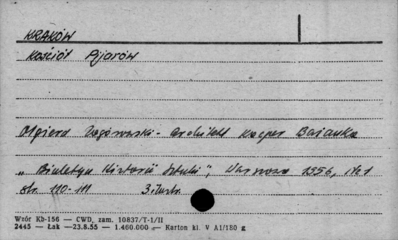 KRAKÓW
Kościół Pijarów
Olgierd Zagórowski - Architekt Kacper Bażanka
„Biuletyn Historii Sztuki", Warszawa 1956, Nr 1
str. 110-111 3 ilustr.
Wzór Kb-156 — CWD, zam. 10837/T-1/II
2445 — Łak —23.8.55 — 1.460.000 — Karton kl. V A1/180 g